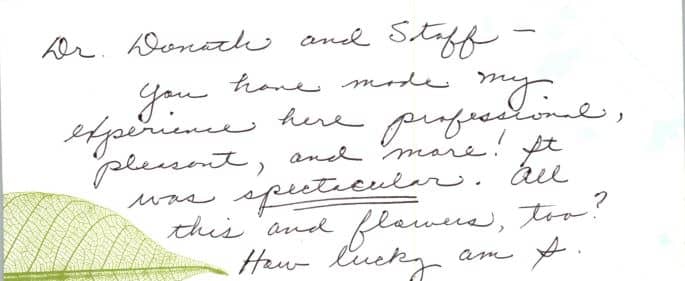 Dr. Donath and Staff –
You have made my
experience here professional,
pleasant, and more! It
was spectacular. All
this and flowers, too?
How lucky am I.